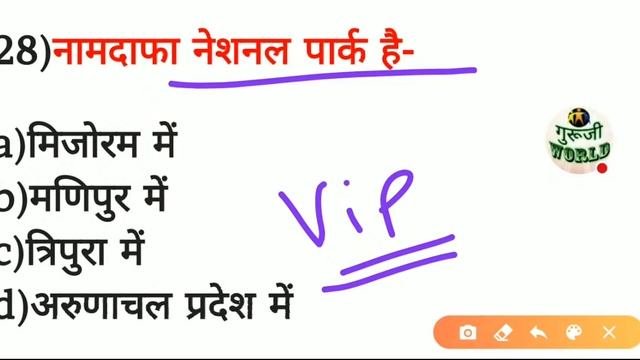 28)नामदाफा नेशनल पार्क है-
a)मिजोरम में
b)मणिपुर में
c)त्रिपुरा में
d)अरुणाचल प्रदेश में
ViP
गुरूजी
WORLD